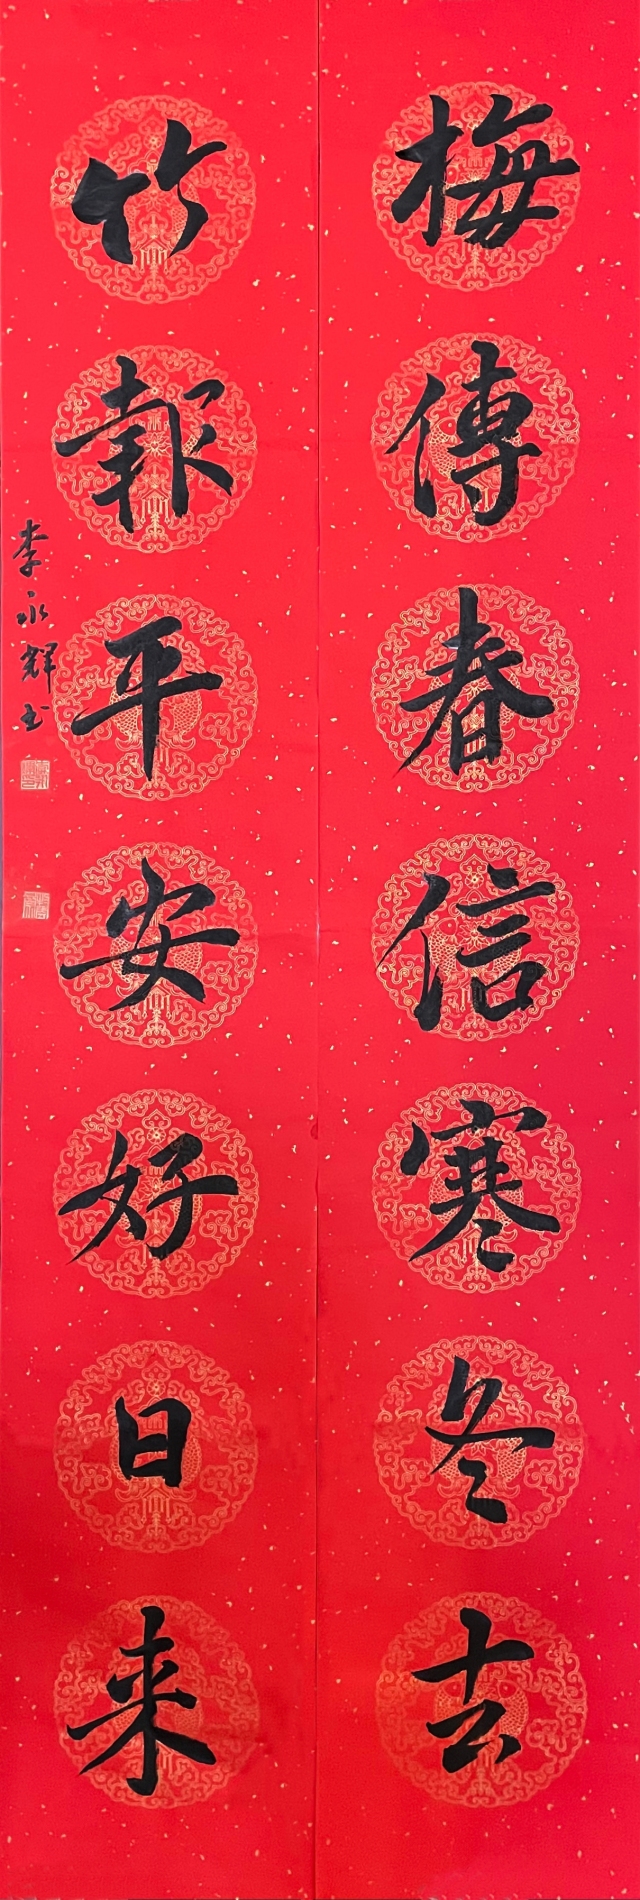 梅傳春信寒冬去
竹報平安好日来
李永輝书